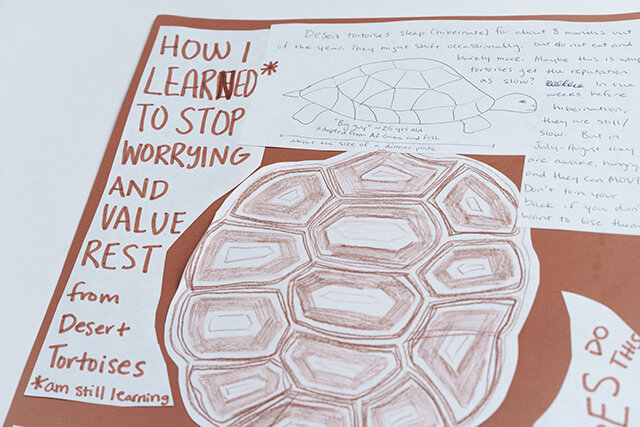 HOW I
LEARNED*
TO STOP
WORRYING
AND
VALUE
REST
from
Desert
Tortoises
*am still learning
Desert tortoises sleep (hibernate) for about 8 months out
of the year. They might shift occassionally, but do not eat and
barely move. Maybe this is why
tortoises get the reputation
as slow? In the
weeks before
hibernation,
they are still/
slow. But in
July-August they
are awake, hungry
and they can MOVE
Don't turn your
back if you don't
want to lose them
"Big guy" ~25 yrs old
adopted from AZ Game and Fish
about the size of a dinner plate
DO
THIS